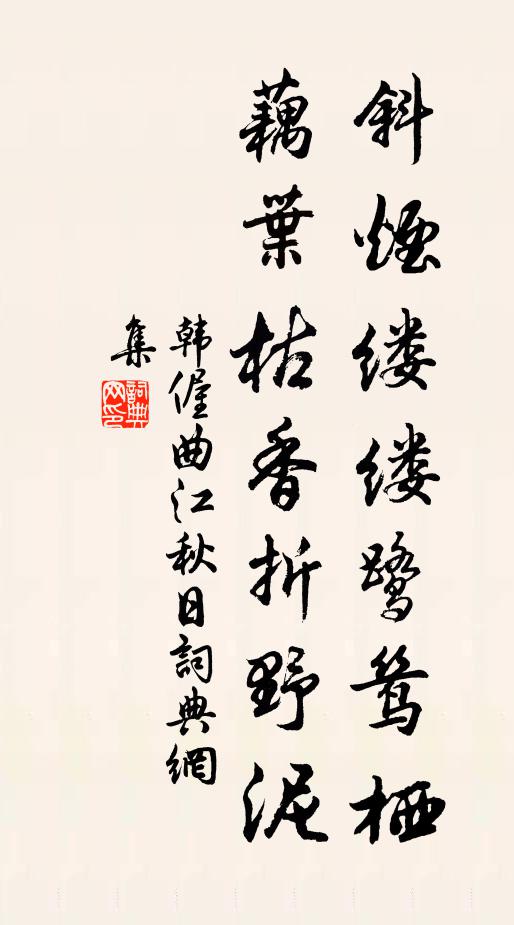 斜煙缕缕鹭鸶栖
藕葉枯香折野泥
韩偓曲江秋日詞典網
集
詞典网印